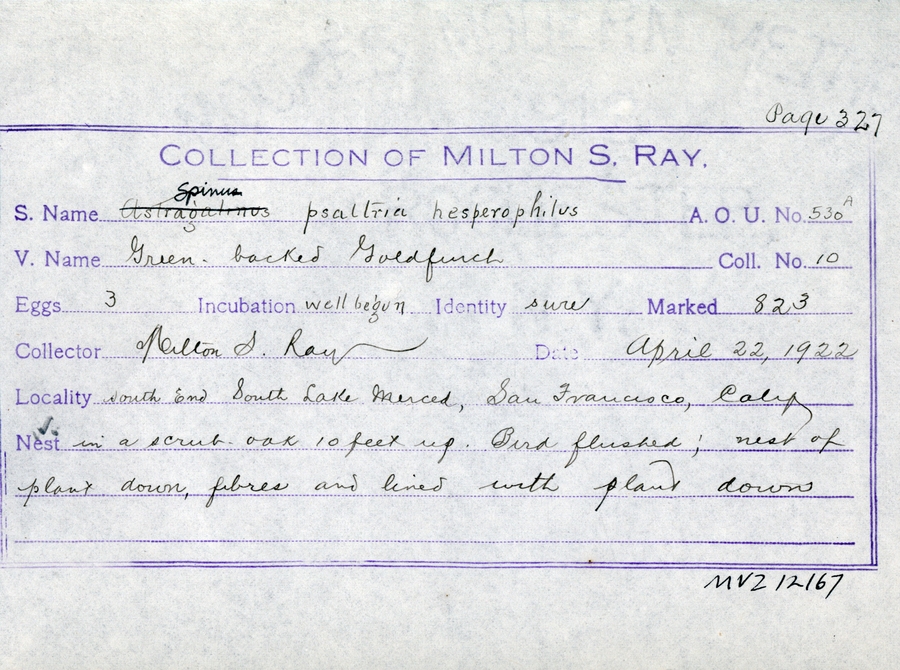 Page 327
COLLECTION OF MILTON S. RAY.
Spinus
S. Name Astragalinus psaltria hesperophilus A. O. U. No. 530A
V. Name Green-backed Goldfinch Coll. No. 10
Eggs 3 Incubation well begun Identity sure Marked 823
Collector Milton S. Ray Date April 22, 1922
Locality South End South Lake Merced, San Francisco, Calif
Nest in a scrub oak 10 feet up. Bird flushed; nest of
plant down, fibres and lined with plant down
MVZ 12167